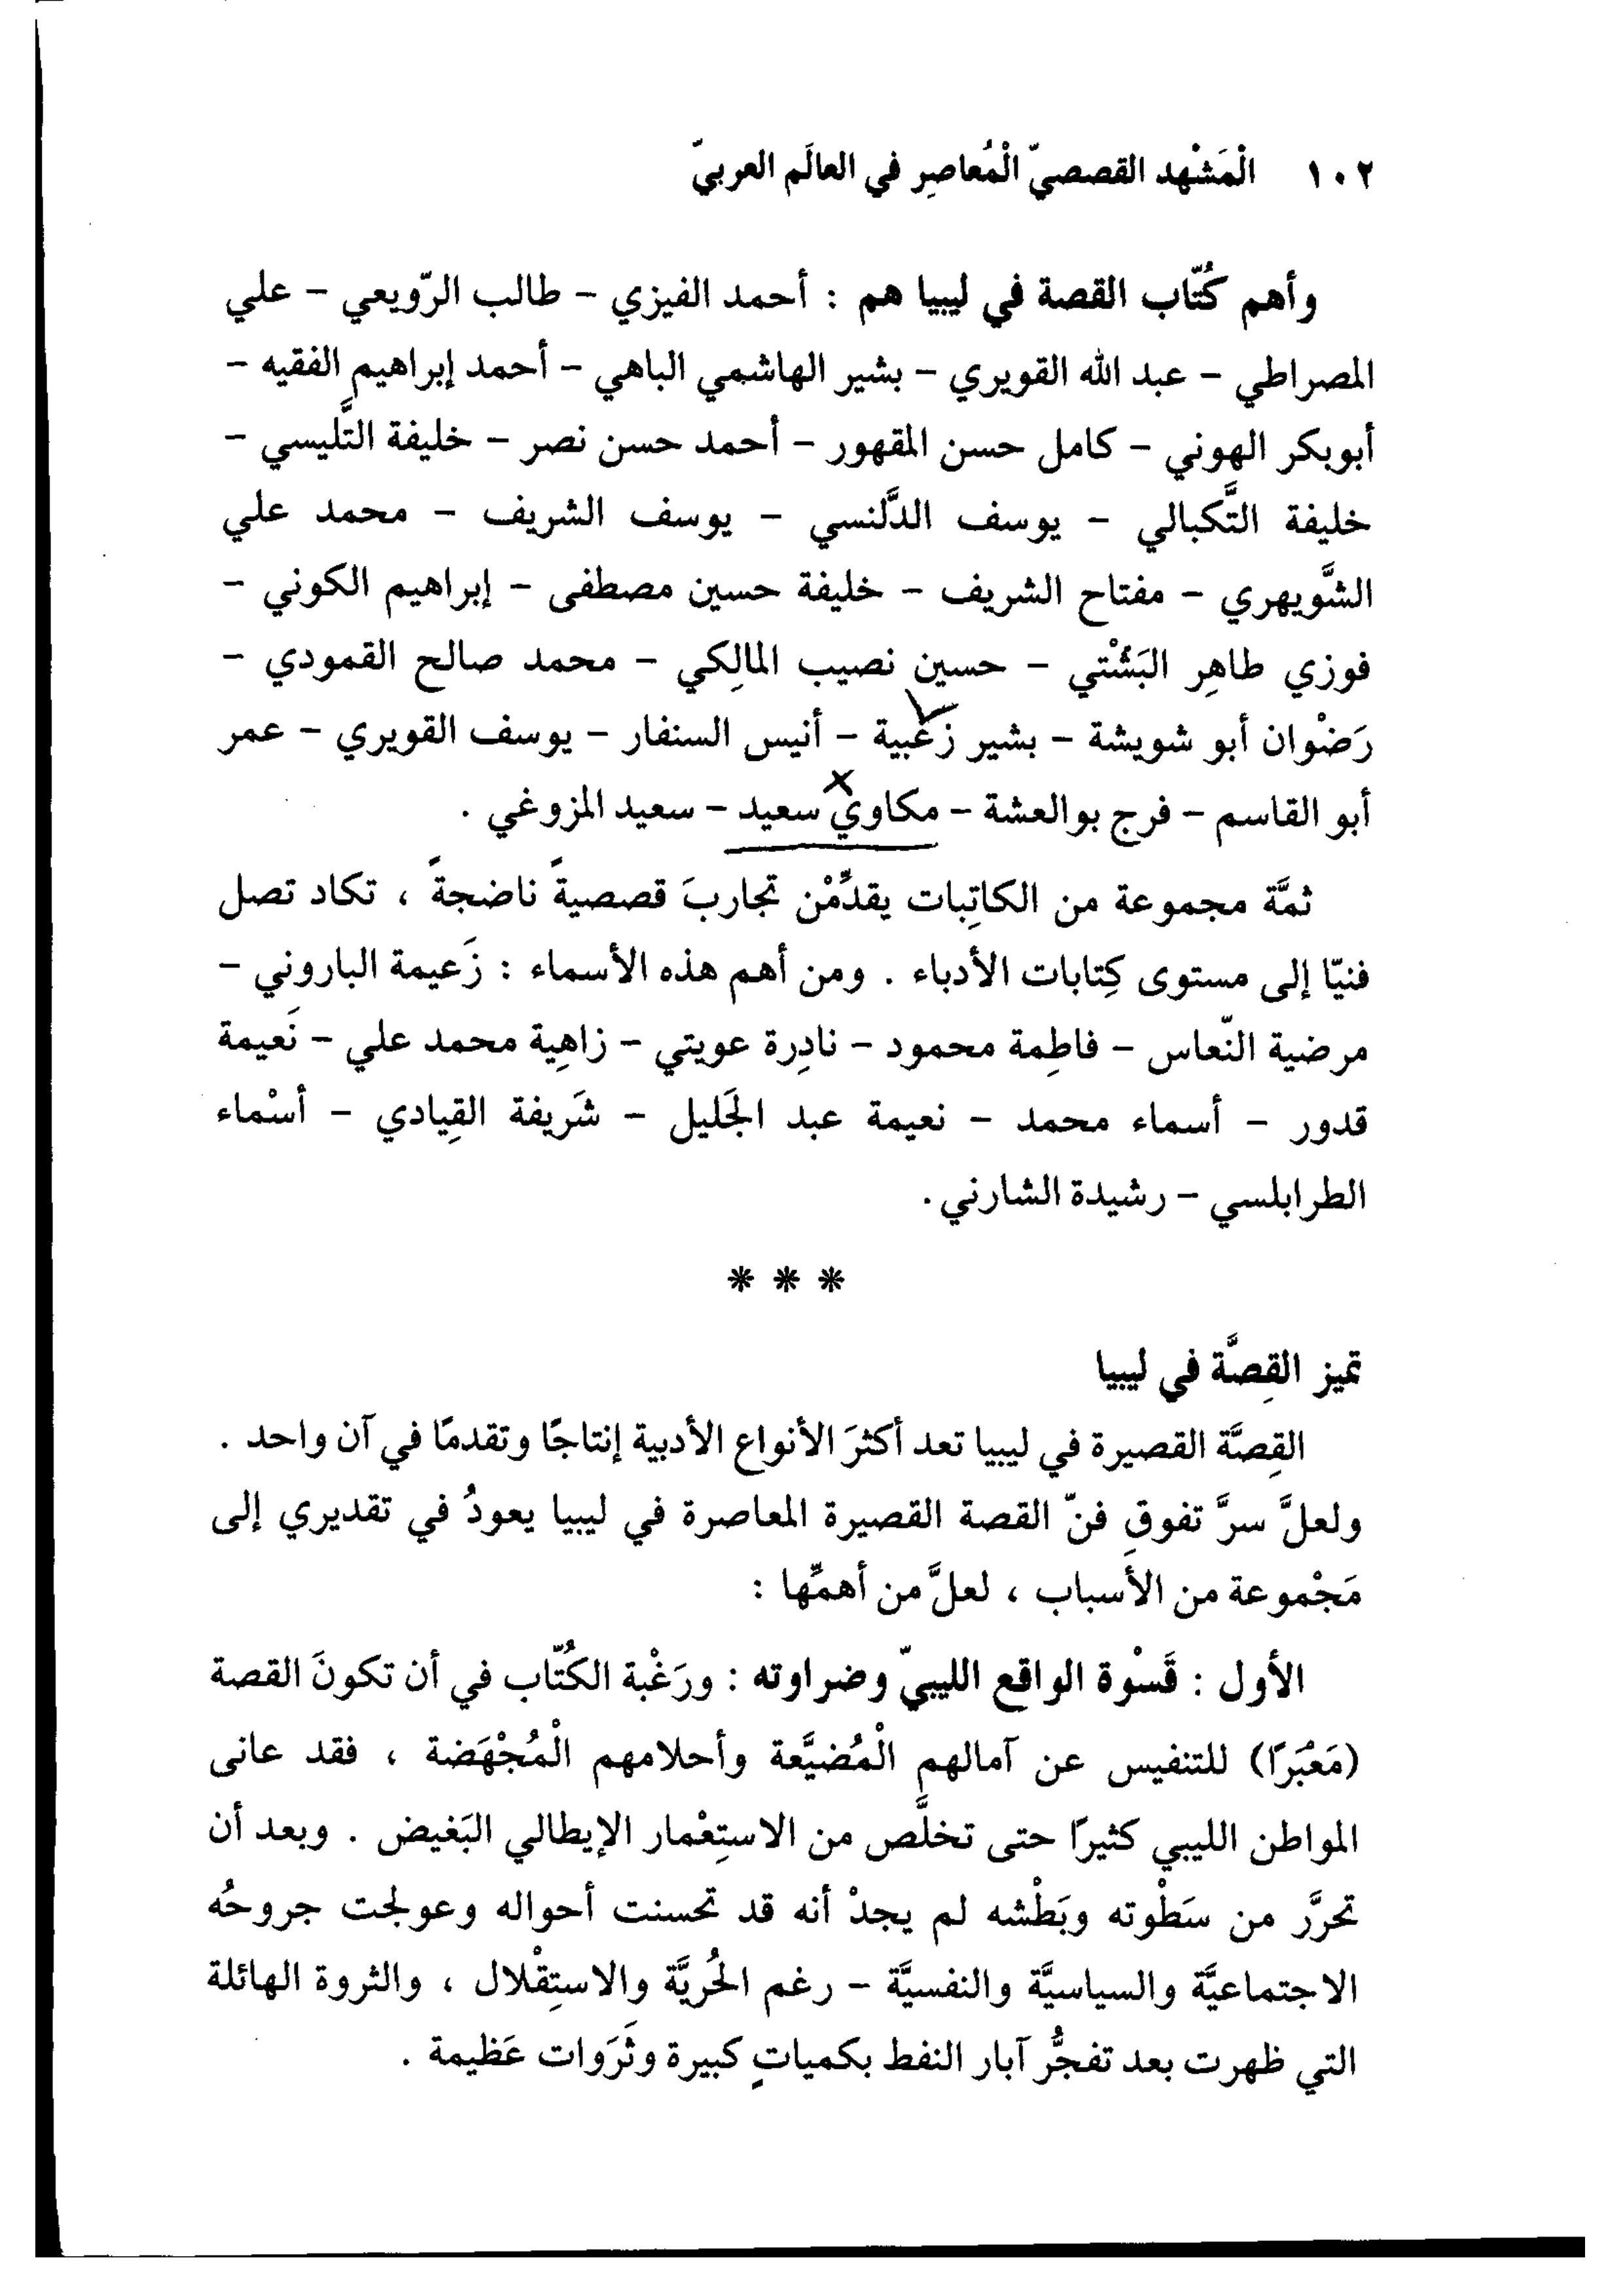 ١٠٢ الْمَشْهد القصصيّ الْمُعاصِر في العالَم العربيّ
وأهم كُتّاب القصة في ليبيا هم : أحمد الفيزي – طالب الرّويعي – علي
المصراطي – عبد الله القويري – بشير الهاشمي الباهي – أحمد إبراهيم الفقيه –
أبوبكر الهوني – كامل حسن المقهور – أحمد حسن نصر – خليفة التَّليسي –
خليفة التَّكبالي – يوسف الدَّلنسي – يوسف الشريف – محمد علي
الشَّويهري – مفتاح الشريف – خليفة حسين مصطفى – إبراهيم الكوني –
فوزي طاهِر البَشْتي – حسين نصيب المالِكي – محمد صالح القمودي –
رَضْوان أبو شويشة – بشير زغبية – أنيس السنفار – يوسف القويري – عمر
أبو القاسم – فرج بوالعشة – مكاوي سعيد – سعيد المزوغي .
ثمَّة مجموعة من الكاتِبات يقدِّمْن تجاربَ قصصيةً ناضجةً ، تكاد تصل
فنيّا إلى مستوى كِتابات الأدباء . ومن أهم هذه الأسماء : زَعيمة الباروني –
مرضية النّعاس – فاطِمة محمود – نادِرة عويتي – زاهِية محمد علي – نَعيمة
قدور – أسماء محمد – نعيمة عبد الجَليل – شَريفة القِيادي – أسْماء
الطرابلسي – رشيدة الشارني .
* * *
تميز القِصَّة في ليبيا
القِصَّة القصيرة في ليبيا تعد أكثرَ الأنواع الأدبية إنتاجًا وتقدمًا في آن واحد .
ولعلَّ سرَّ تفوقِ فنّ القصة القصيرة المعاصرة في ليبيا يعودُ في تقديري إلى
مَجْموعة من الأسباب ، لعلَّ من أهمِّها :
الأول : قَسْوة الواقع الليبيّ وضراوته : ورَغْبة الكُتّاب في أن تكونَ القصة
(مَعْبَرًا) للتنفيس عن آمالهم الْمُضيَّعة وأحلامهم الْمُجْهَضة ، فقد عانى
المواطن الليبي كثيرًا حتى تخلَّص من الاستِعْمار الإيطالي البَغيض . وبعد أن
تحرَّر من سَطْوته وبَطْشه لم يجدْ أنه قد تحسنت أحواله وعولجت جروحُه
الاجتماعيَّة والسياسيَّة والنفسيَّة – رغم الحُريَّة والاستِقْلال ، والثروة الهائلة
التي ظهرت بعد تفجُّر آبار النفط بكمياتٍ كبيرة وثَرَوات عَظيمة .